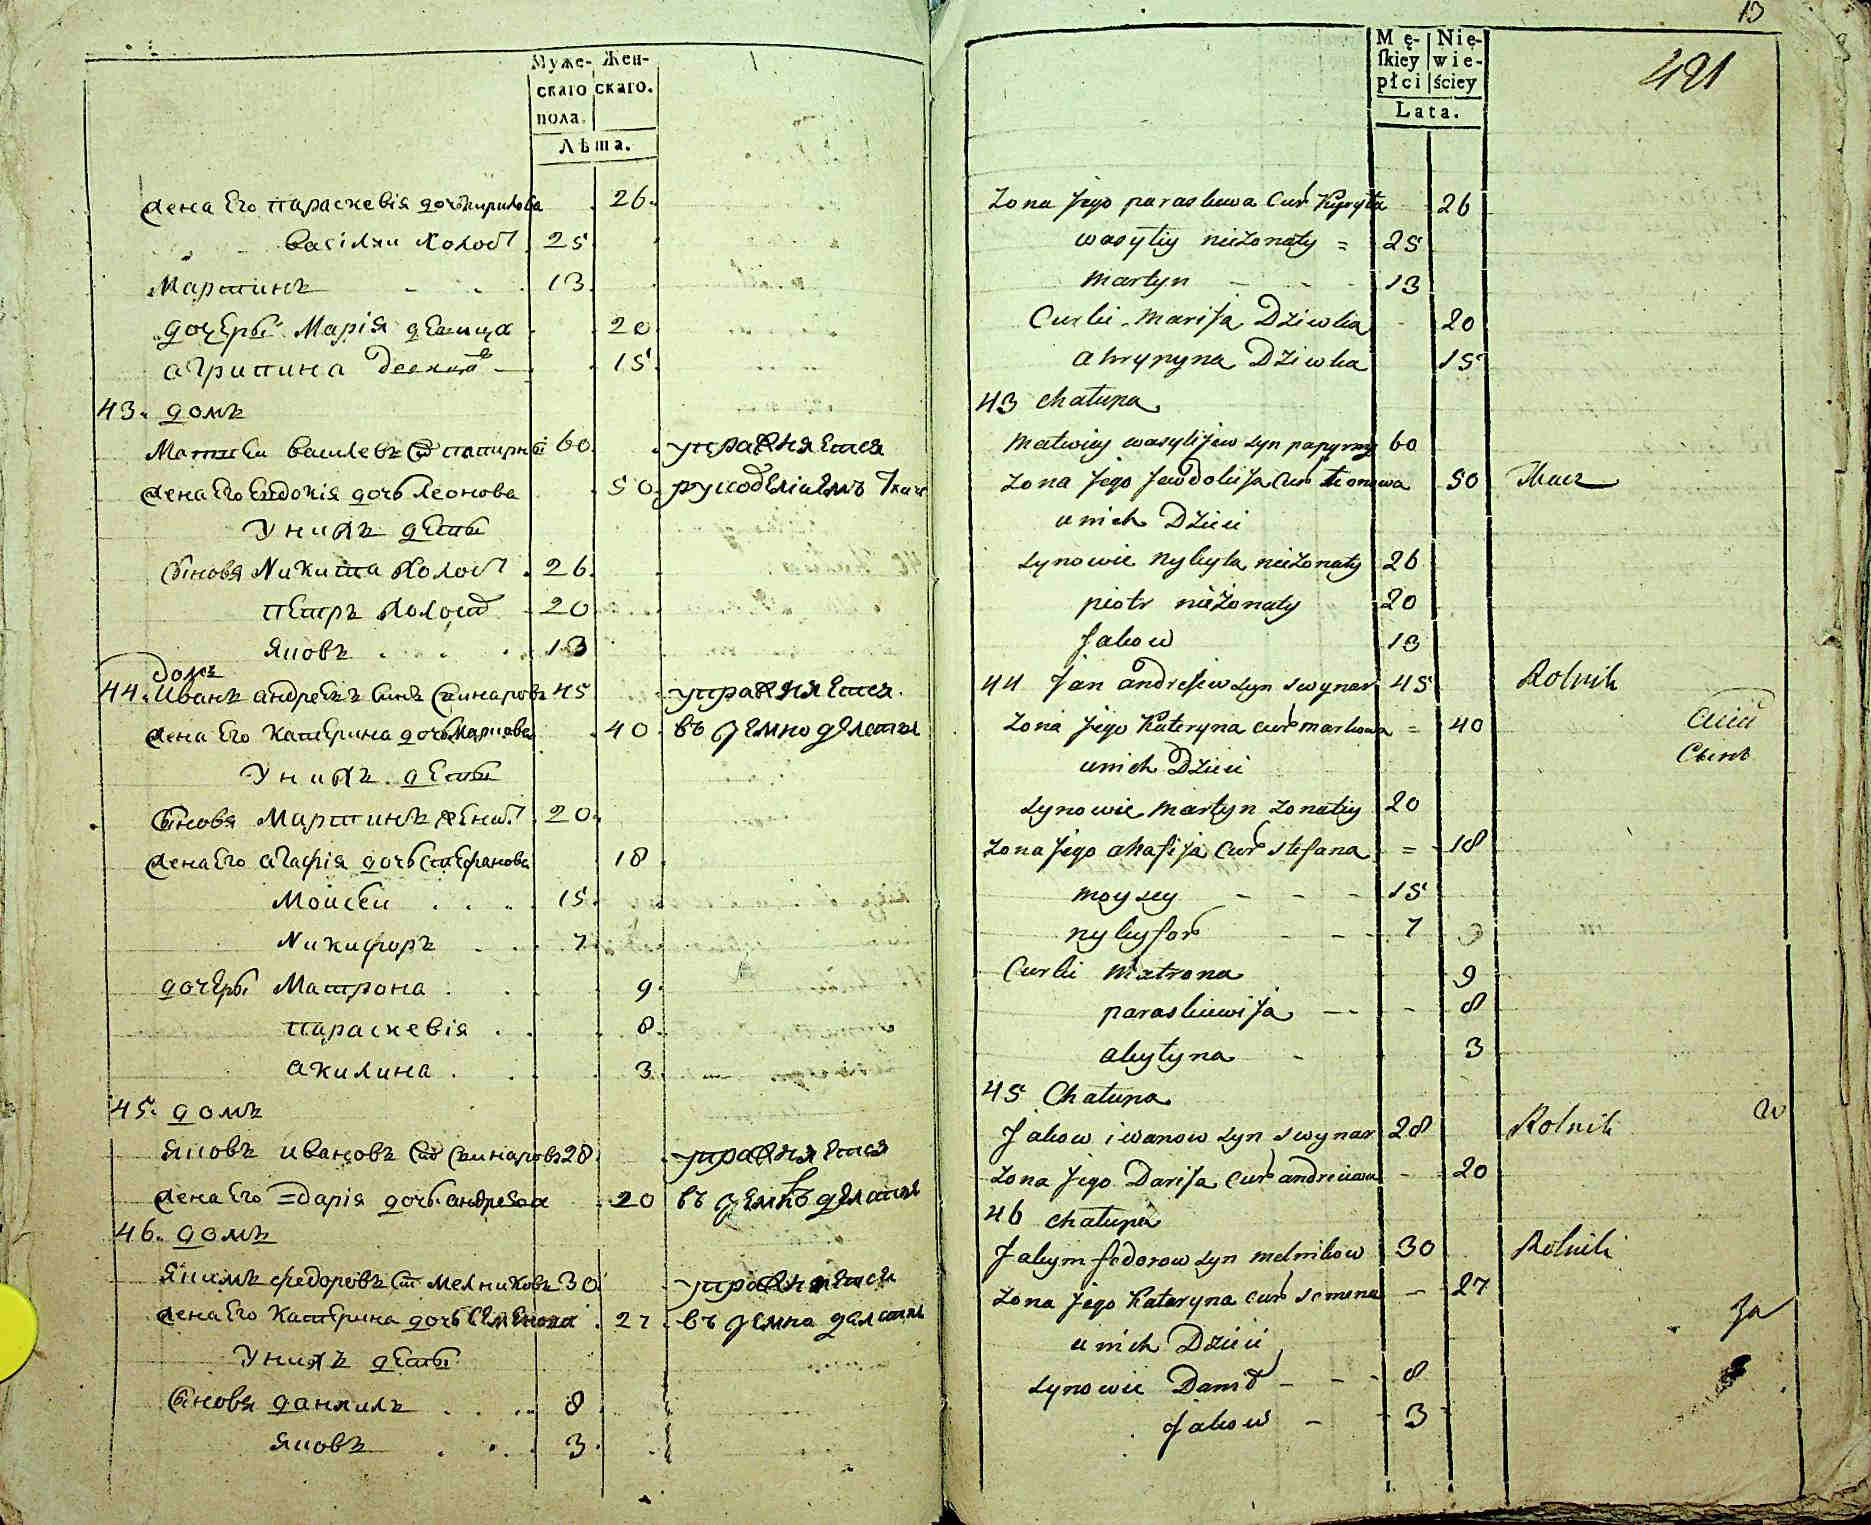 Муже- Жен-
скаго скаго.
пола.
Лѣта.
жена Его параскевія дочь кирилова 26
василии холост 25
Мартинъ 13
дочеры Марія девица 20
агрипина девица 15
43. домъ
Матвеи василевъ папирны 60 упражняется
жена Его Евдокія дочь Леонова 50 рукоделіемъ Ткач
У нихъ дети
Сыновя Никита холост 26
петръ холост 20
яковъ 13
домъ
44. Иванъ андреевъ Сынъ Свинаровъ 45 упражняется
жена Его катерина дочь Маркова 40 въ земло делстве
У нихъ дети
Сыновя Мартинъ женат 20
жена Его агафія дочь Стефанова 18
Моисеи 15
Никифоръ 7
дочеры Матрона 9
параскевія 8
акилина 3
45. домъ
яковъ ивановъ Свинаровъ 28 упражняется
жена Его дарія дочь андреева 20
46. домъ
якимъ федоровъ мелниковъ 30 упражняется
жена Его катерина дочь Семенова 27
У нихъ дети
Сыновя данилъ 8
яковъ 3
13
Mę- Nie-
ſkiey wie-
płci ściey
Lata.
421
Zona Jego paraskiewa Cur Kiryła 26
wasyliy nieżonaty = 25
martyn 13
Curki marija Dziwka 20
ahrypyna Dziwka 15
43 chałupa
matwiey wasylijew syn papyrny 60
Zona Jego Jewdokija Cur Leonowa 50 Tkacz
u nich Dzieci
synowie nykyta nieżonaty 26
piotr nieżonaty 20
Jakow 13
44 Jan andrejew syn swynar 45 Rolnik
Zona Jego Kateryna cur markowa = 40
Сынъ
u nich Dzieci
synowie martyn żonatiy 20
Zona Jego ahafija Cur stefana = 18
moysey 15
nykyfor 7
Curki matrona 9
paraskiewija 8
akyłyna 3
45 Chałupa
Jakow iwanow syn swynar 28 Rolnik
Zona Jego Darija Cur andreiewa 20
46 chałupa
Jakym fedorow syn melnikow 30 Rolnik
Zona Jego Kataryna cur semena 27
u nich Dzieci
synowie Danił 8
Jakow 3